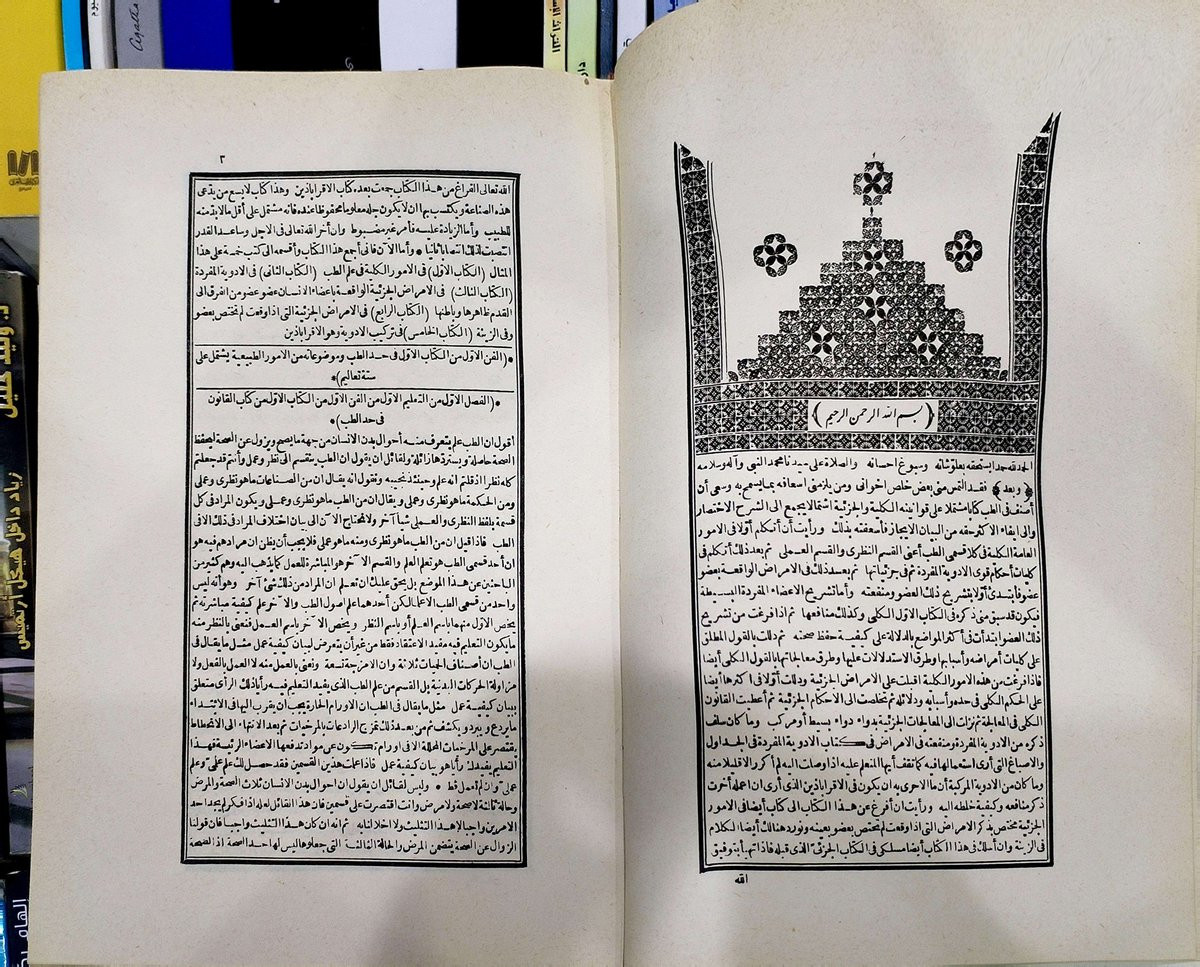 بسم الله الرحمن الرحيم
الحمد لله حمدا يستحقه بعلو شأنه وسبوغ احسانه والصلاة على سيدنا محمد النبى وآله وسلامه
(وبعد) فقد التمس منى بعض خلص اخوانى ومن يلزمنى اسعافه بما يسمح به وسعى أن
أصنف فى الطب كتابا مشتملا على قوانينه الكلية والجزئية اشتمالا يجمع الى الشرح الاختصار
والى ايفاء الاكثر حقه من البيان الايجاز فأسعفته بذلك ورأيت أن أتكلم أولا فى الامور
العامة الكلية فى كلا قسمى الطب أعنى القسم النظرى والقسم العملى ثم بعد ذلك أتكلم فى
كليات أحكام قوى الادوية المفردة ثم فى جزئياتها ثم بعد ذلك فى الامراض الواقعة بعضو
عضو فأبتدئ أولا بتشريح ذلك العضو ومنفعته وأما تشريح الاعضاء المفردة البسيطة
فيكون قد سبق منى ذكره فى الكتاب الاول الكلى وكذلك منافعها ثم اذا فرغت من تشريح
ذلك العضو ابتدأت فى أكثر المواضع بالدلالة على كيفية حفظ صحته ثم دللت بالقول المطلق
على كليات أمراضه وأسبابها وطرق الاستدلالات عليها وطرق معالجاتها بالقول الكلى أيضا
فاذا فرغت من هذه الامور الكلية اقبلت على الامراض الجزئية ودللت أولا فى اكثرها أيضا
على الحكم الكلى فى حده وأسبابه ودلائله ثم تخلصت الى الأحكام الجزئية ثم أعطيت القانون
الكلى فى المعالجة ثم نزلت الى المعالجات الجزئية بدواء دواء بسيط أو مركب وما كان سلف
ذكره من الادوية المفردة ومنفعته فى الامراض فى كتاب الادوية المفردة فى الجداول
والاصباغ التى أرى استعمالها فيه كما تقف أيها المتعلم عليه اذا وصلت اليه لم اكرر الا قليلا منه
وما كان من الادوية المركبة أن ما الاحرى به ان يكون فى الاقراباذين الذى أرى ان اعمله أخرت
ذكر منافعه وكيفية خلطه اليه ورأيت أن أفرغ عن هذا الكتاب الى كتاب أيضا فى الامور
الجزئية مختص بذكر الامراض التى اذا وقعت لم تختص بعضو بعينه ونورد هنالك أيضا الكلام
فى الزينة وان أسلك فى هذا الكتاب أيضا مسلكى فى الكتاب الجزئى الذى قبله فاذا تم بابتوفيق
الله
٢
الله تعالى الفراغ من هذا الكتاب جمعت بعده كتاب الاقراباذين وهذا كتاب لا يسع من يدعى
هذه الصناعة ويكتسب بها ان لا يكون جله معلوما محفوظا عنده فانه مشتمل على أقل ما لا بد منه
للطبيب وأما الزيادة عليه فأمر غير مضبوط وان أخر الله تعالى فى الاجل وساعد القدر
انتصبت لذلك انتصابا ثانيا * وأما الآن فانى أجمع هذا الكتاب وأقسمه الى كتب خمسة على هذا
المثال (الكتاب الاول) فى الامور الكلية فى علم الطب (الكتاب الثانى) فى الادوية المفردة
(الكتاب الثالث) فى الامراض الجزئية الواقعة بأعضاء الانسان عضو عضو من الفرق الى
القدم ظاهرها وباطنها (الكتاب الرابع) فى الامراض الجزئية التى اذا وقعت لم تختص بعضو
وفى الزينة (الكتاب الخامس) فى تركيب الادوية وهو الاقراباذين
*(الفن الاول من الكتاب الاول فى حد الطب وموضوعاته من الامور الطبيعية يشتمل على
ستة تعاليم)*
*(الفصل الاول من التعليم الاول من الفن الاول من الكتاب الاول من كتاب القانون
فى حد الطب)*
أقول ان الطب علم يتعرف منه أحوال بدن الانسان من جهة ما يصح ويزول عن الصحة ليحفظ
الصحة حاصلة ويستردها زائلة ولقائل ان يقول ان الطب ينقسم الى نظر وعمل وأنتم قد جعلتم
كله نظرا اذ قلتم انه علم وحينئذ نجيبه ونقول انه يقال ان من الصناعات ما هو نظرى وعملى
ومن الحكمة ما هو نظرى وعملى ويقال ان من الطب ما هو نظرى وعملى ويكون المراد فى كل
قسمة بلفظ النظرى والعملى شيأ آخر ولا نحتاج الآن الى بيان اختلاف المراد فى ذلك الا فى
الطب فاذا قيل ان من الطب ما هو نظرى ومنه ما هو عملى فلا يجب أن يظن ان مرادهم فيه هو
ان أحد قسمى الطب هو تعلم العلم والقسم الآخر هو المباشرة للعمل كما يذهب اليه وهم كثير من
الباحثين عن هذا الموضع بل يحق عليك ان تعلم ان المراد من ذلك شئ آخر وهو أنه ليس
واحد من قسمى الطب الا علما لكن أحدهما علم اصول الطب والآخر علم كيفية مباشرته ثم
يختص الاول منهما باسم العلم أو باسم النظر ويختص الآخر باسم العمل فنعنى بالنظر منه
ما يكون التعليم فيه مفيد الاعتقاد فقط من غير أن يتعرض لبيان كيفية عمل مثل ما يقال فى
الطب ان أصناف الحميات ثلاثة وان الامزجة تسعة ونعنى بالعمل منه لا العمل بالفعل ولا
مزاولة الحركات البدنية بل القسم من علم الطب الذى يفيد التعليم فيه رأيا ذلك الرأى متعلق
ببيان كيفية عمل مثل ما يقال فى الطب ان الاورام الحارة يجب ان يقرب اليها فى الابتداء
ما يردع ويبرد ويكثف ثم من بعد ذلك تمزج الرادعات بالمرخيات ثم بعد الانتهاء الى الانحطاط
يقتصر على المرخيات المحللة الا فى اورام تكون عن مواد تدفعها الاعضاء الرئيسة فهذا
التعليم يفيدك رأيا هو بيان كيفية عمل فاذا علمت هذين القسمين فقد حصل لك علم علمى وعلم
عملى وان لم تعمل قط * وليس لقائل ان يقول ان احوال بدن الانسان ثلاث الصحة والمرض
وحالة ثالثة لا صحة ولا مرض وانت اقتصرت على قسمين فان هذا القائل لعله اذا فكر لم يجد احد
الامرين واجبا لا هذا التثليث ولا اخلالنا به ثم انه ان كان هذا التثليث واجبا فان قولنا
الزوال عن الصحة يتضمن المرض والحالة الثالثة التى جعلوها ليس لها حد الصحة اذ الصحة
Agatha
زياد داخل هيكل أرتميس